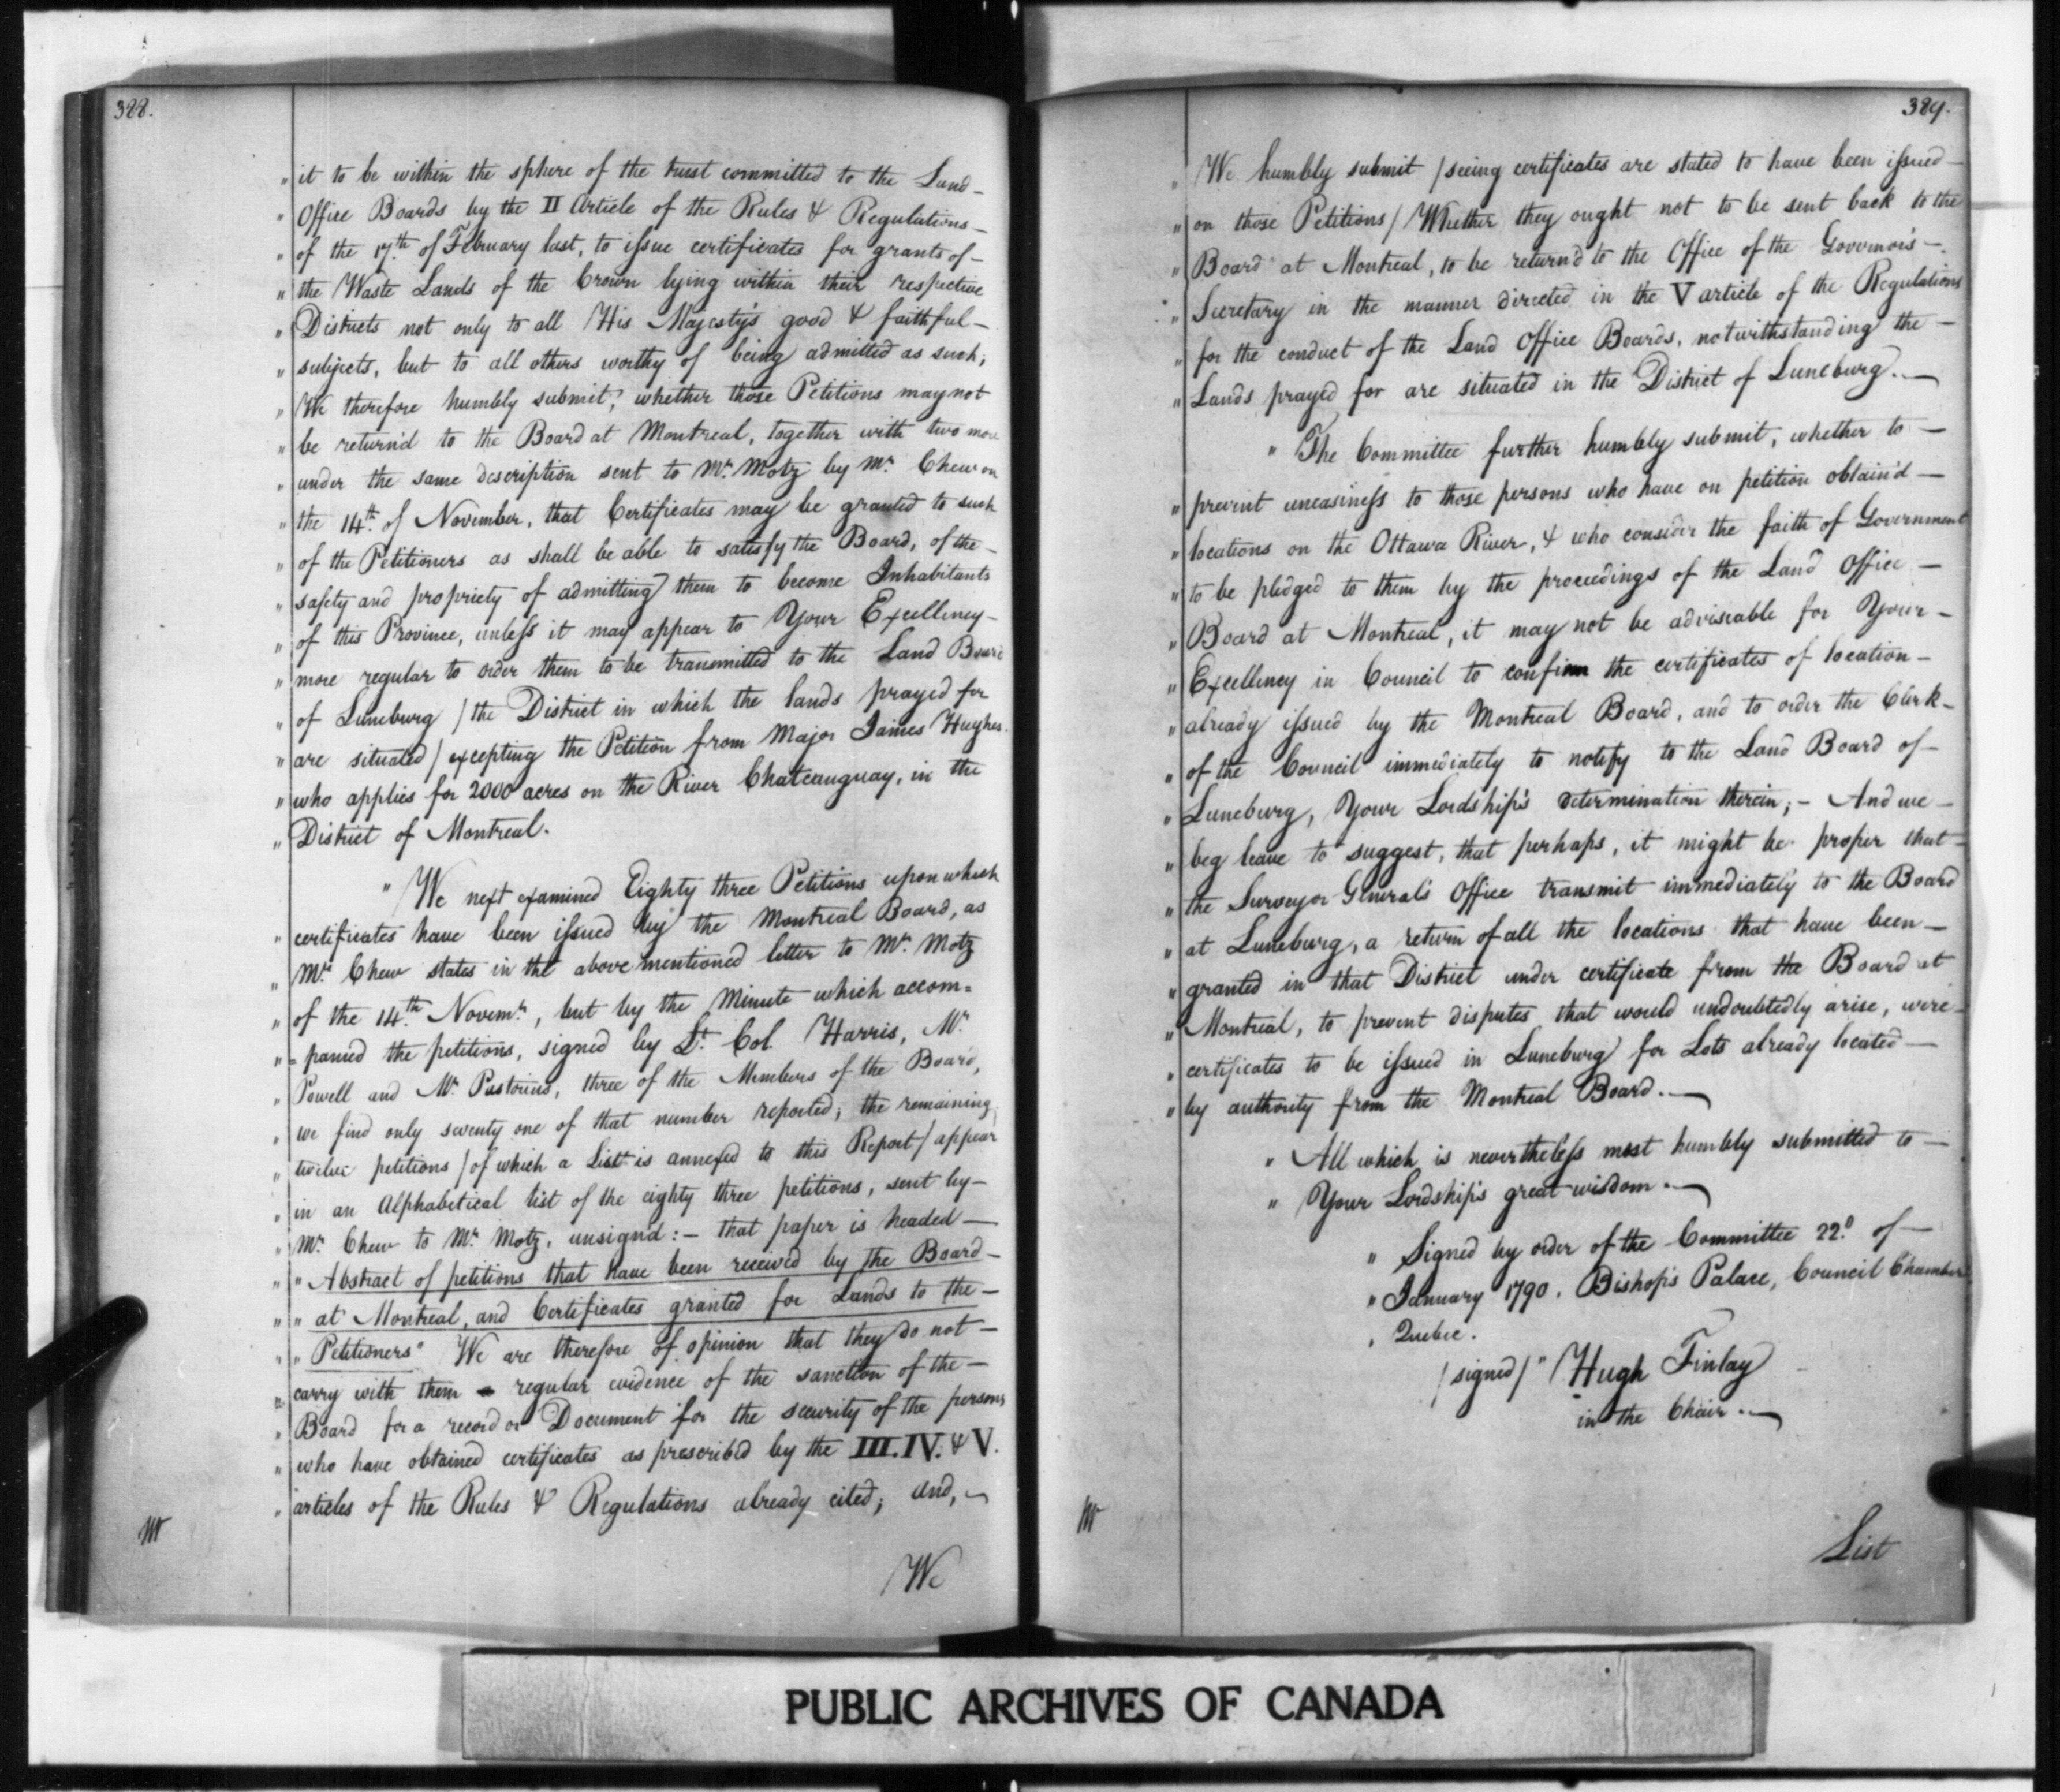 388.
" it to be within the sphere of the trust committed to the Land -
" Office Boards by the II Article of the Rules & Regulations -
" of the 17th. of February last, to issue certificates for grants of -
" the Waste Lands of the Crown lying within their respective
" Districts not only to all His Majesty's good & faithful -
" subjects, but to all others worthy of being admitted as such;
" We therefore humbly submit, whether those Petitions may not
" be return'd to the Board at Montreal, together with two more
" under the same description sent to Mr. Motz by Mr. Chew on
" the 14th. of November, that Certificates may be granted to such
" of the Petitioners as shall be able to satisfy the Board, of the -
" safety and propriety of admitting them to become Inhabitants
" of this Province, unless it may appear to Your Excellency -
" more regular to order them to be transmitted to the Land Board
" of Luneburg / the District in which the lands prayed for
" are situated / excepting the Petition from Major James Hughes.
" who applies for 2000 acres on the River Chateauguay, in the
" District of Montreal.
" We next examined Eighty three Petitions upon which
" certificates have been issued by the Montreal Board, as
" Mr. Chew states in the above mentioned letter to Mr. Motz
" of the 14th. Novemr., but by the Minute which accom=
" =panied the petitions, signed by Lt. Col Harris, Mr.
" Powell and Mr. Pastorius, three of the Members of the Board,
" we find only seventy one of that number reported; the remaining
" twelve petitions / of which a List is annexed to this Report / appear
" in an Alphabetical list of the eighty three petitions, sent by -
" Mr. Chew to Mr. Motz, unsign'd : - that paper is headed -
" " Abstract of petitions that have been received by the Board -
" " at Montreal, and Certificates granted for Lands to the -
" " Petitioners" We are therefore of opinion that they do not -
" carry with them a regular evidence of the sanction of the -
" Board for a record or Document for the security of the persons
" who have obtained certificates as prescribed by the III. IV. & V.
" articles of the Rules & Regulations already cited; and, -
We
389.
" We humbly submit / seeing certificates are stated to have been issued -
" on those Petitions / Whether they ought not to be sent back to the
" Board at Montreal, to be return'd to the Office of the Governor's -
" Secretary in the manner directed in the V article of the Regulations
" for the conduct of the Land Office Boards, notwithstanding the -
" Lands prayed for are situated in the District of Luneburg. -
" The Committee further humbly submit, whether to -
" prevent uneasiness to those persons who have on petition obtain'd -
" locations on the Ottawa River, & who consider the faith of Government
" to be pledged to them by the proceedings of the Land Office -
" Board at Montreal, it may not be adviseable for Your -
" Excellency in Council to confirm the certificates of location -
" already issued by the Montreal Board, and to order the Clerk -
" of the Council immediately to notify to the Land Board of -
" Luneburg, Your Lordship's determination therein; - And we -
" beg leave to suggest, that perhaps, it might be proper that -
" the Surveyor General's Office transmit immediately to the Board
" at Luneburg, a return of all the locations that have been -
" granted in that District under certificate from the Board at
" Montreal, to prevent disputes that would undoubtedly arise, were -
" certificates to be issued in Luneburg for Lots already located -
" by authority from the Montreal Board. -
" All which is nevertheless most humbly submitted to -
" Your Lordship's great wisdom. -
" Signed by order of the Committee 22d. of -
" January 1790. Bishop's Palace, Council Chamber
" Quebec.
/ signed / " Hugh Finlay
in the Chair. -
List
PUBLIC ARCHIVES OF CANADA